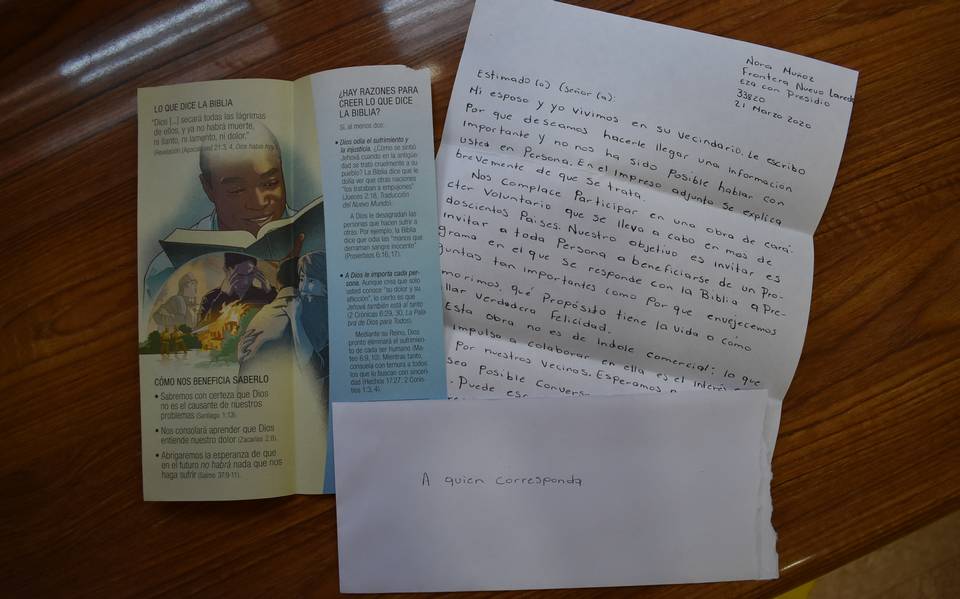 LO QUE DICE LA BIBLIA
"Dios [...] secará todas las lágrimas
de ellos, y ya no habrá muerte,
ni llanto, ni lamento, ni dolor."
(Revelación [Apocalipsis] 21:3, 4, Dios habla hoy).
CÓMO NOS BENEFICIA SABERLO
• Sabremos con certeza que Dios
no es el causante de nuestros
problemas (Santiago 1:13).
• Nos consolará aprender que Dios
entiende nuestro dolor (Zacarías 2:8).
• Abrigaremos la esperanza de que
en el futuro no habrá nada que nos
haga sufrir (Salmo 37:9-11).
¿HAY RAZONES PARA
CREER LO QUE DICE
LA BIBLIA?
Sí, al menos dos:
• Dios odia el sufrimiento y
la injusticia. ¿Cómo se sintió
Jehová cuando en la antigüe-
dad se trató cruelmente a su
pueblo? La Biblia dice que le
dolía ver que otras naciones
"los trataban a empujones"
(Jueces 2:18, Traducción
del Nuevo Mundo).
A Dios le desagradan las
personas que hacen sufrir a
otras. Por ejemplo, la Biblia
dice que odia las "manos que
derraman sangre inocente"
(Proverbios 6:16, 17).
• A Dios le importa cada per-
sona. Aunque crea que solo
usted conoce "su dolor y su
aflicción", lo cierto es que
Jehová también está al tanto
(2 Crónicas 6:29, 30, La Pala-
bra de Dios para Todos).
Mediante su Reino, Dios
pronto eliminará el sufrimien-
to de cada ser humano (Ma-
teo 6:9, 10). Mientras tanto,
consuela con ternura a todos
los que lo buscan con sinceri-
dad (Hechos 17:27; 2 Corin-
tios 1:3, 4).
Nora Muñoz
Frontera Nuevo Laredo
eza con Presidio
33820
21 Marzo 2020
Estimado (a) (Señor (a):
Mi esposo y yo vivimos en su vecindario. Le escribo
Por que deseamos hacerle llegar una informacion
Importante y no nos ha sido Posible hablar con
usted en Persona. En el Impreso adjunto se explica
brevemente de que se trata.
Nos complace Participar en una obra de cará-
cter Voluntario que se lleva a cabo en mas de
doscientos Paises. Nuestro objetivo es invitar es
invitar a toda Persona a beneficiarse de un Pro-
grama en el que se responde con la Biblia a Pre-
guntas tan importantes como Por que envejecemos
morimos, qué Propósito tiene la Vida o cómo
llar Verdadera Felicidad.
Esta obra no es de indole comercial: lo que
impulsa a colaborar en ella es el Interés
Por nuestros Vecinos. Esperamos
sea Posible
Puede
A quien corresponda